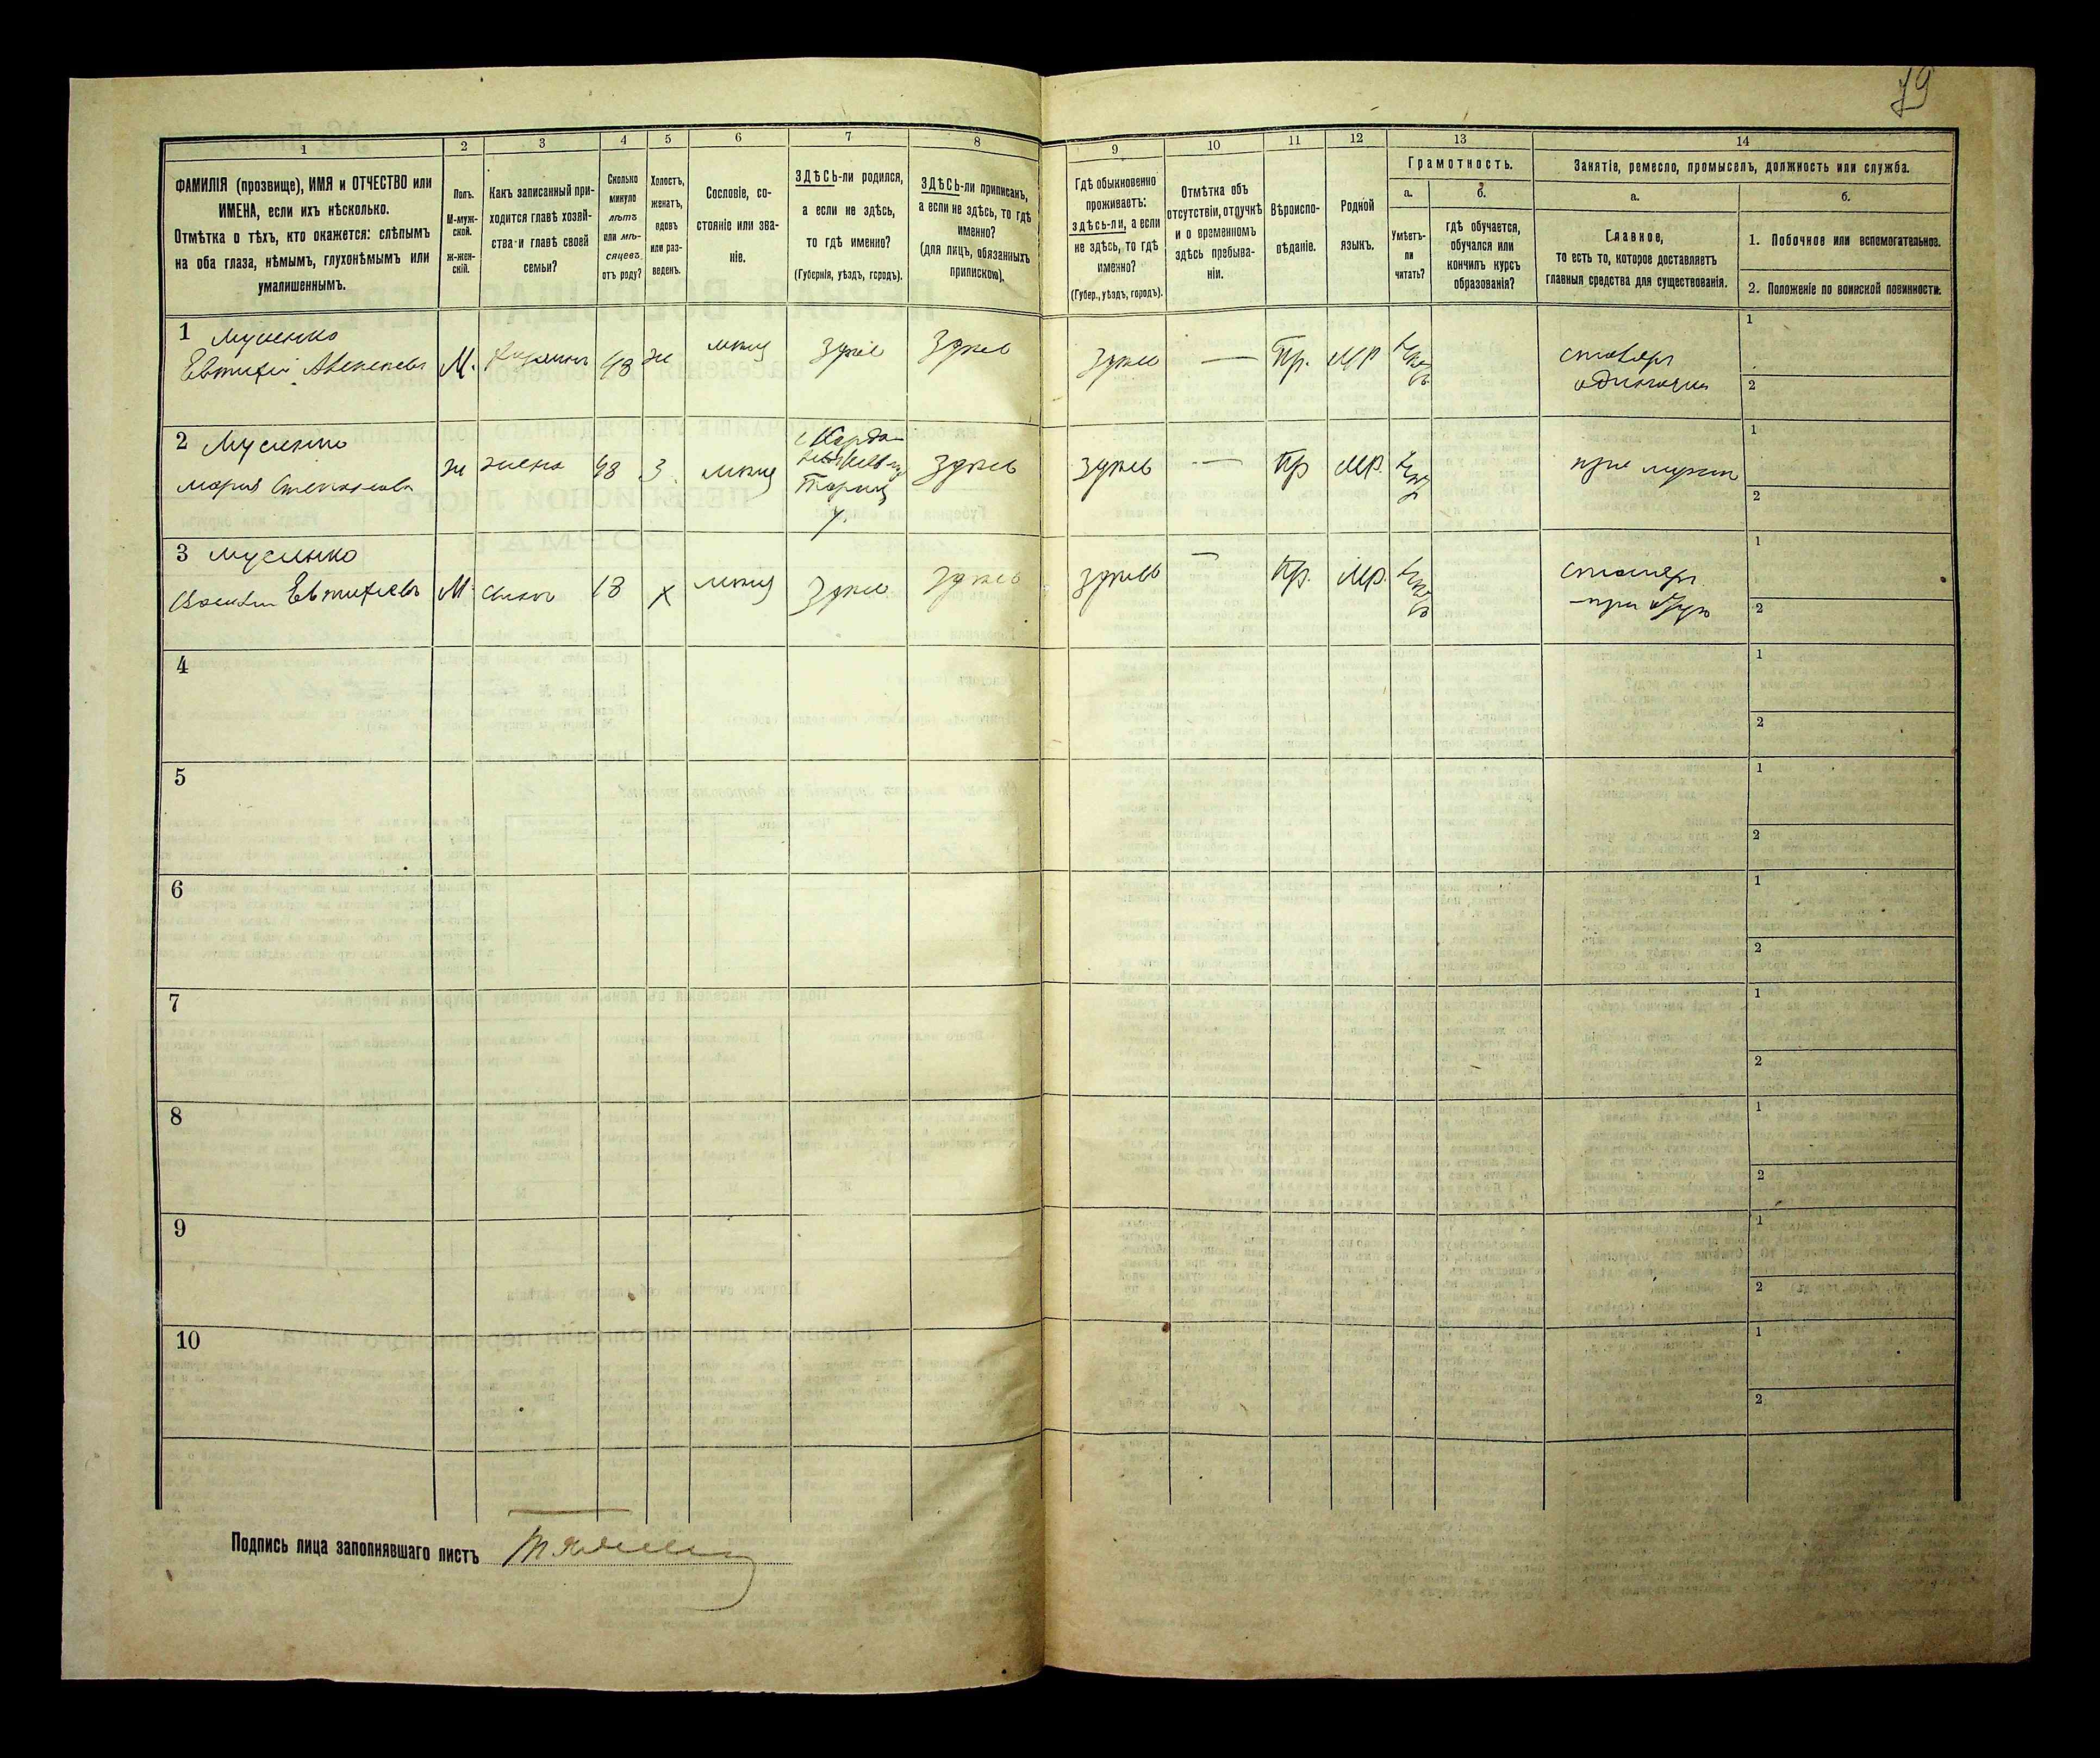 79
1
2
3
4
5
6
7
8
ФАМИЛІЯ (прозвище), ИМЯ и ОТЧЕСТВО или
ИМЕНА, если ихъ нѣсколько.
Отмѣтка о тѣхъ, кто окажется: слѣпымъ
на оба глаза, нѣмымъ, глухонѣмымъ или
умалишеннымъ.
Полъ.
М-муж-
ской.
Ж-жен-
скій.
Какъ записанный при-
ходится главѣ хозяй-
ства и главѣ своей
семьи?
Сколько
минуло
лѣтъ
или мѣ-
сяцевъ
отъ роду?
Холостъ,
женатъ,
вдовъ
или раз-
веденъ.
Сословіе, со-
стояніе или зва-
ніе.
ЗДѢСЬ-ли родился,
а если не здѣсь,
то гдѣ именно?
(Губернія, уѣздъ, городъ).
ЗДѢСЬ-ли приписанъ,
а если не здѣсь, то гдѣ
именно?
(для лицъ, обязанныхъ
припискою).
9
10
11
12
13
14
Гдѣ обыкновенно
проживаетъ:
здѣсь-ли, а если
не здѣсь, то гдѣ
именно?
(Губер., уѣздъ, городъ).
Отмѣтка объ
отсутствіи, отлучкѣ
и о временномъ
здѣсь пребыва-
ніи.
Вѣроиспо-
вѣданіе.
Родной
языкъ.
Грамотность.
а.
б.
Умѣетъ-
ли
читать?
гдѣ обучается,
обучался или
кончилъ курсъ
образованія?
Занятіе, ремесло, промыселъ, должность или служба.
а.
б.
Главное,
то есть то, которое доставляетъ
главныя средства для существованія.
1. Побочное или вспомогательное.
2. Положеніе по воинской повинности.
1 Мусіенко
Евтихій М. хозяинъ 48 ж мѣщ здѣсь здѣсь
здѣсь — Пр. МР столяръ одиночка
1
2
2 Мусіенко
Марія Степановна ж жена 48 З. мѣщ здѣсь
здѣсь — Пр МР. при мужѣ
1
2
3 Мусіенко
Евтихіевъ М. сынъ 18 х мѣщ здѣсь здѣсь
здѣсь — Пр. МР. столяръ
при отцѣ
1
2
4
1
2
5
1
2
6
1
2
7
1
2
8
1
2
9
1
2
10
1
2
Подпись лица заполнявшаго листъ